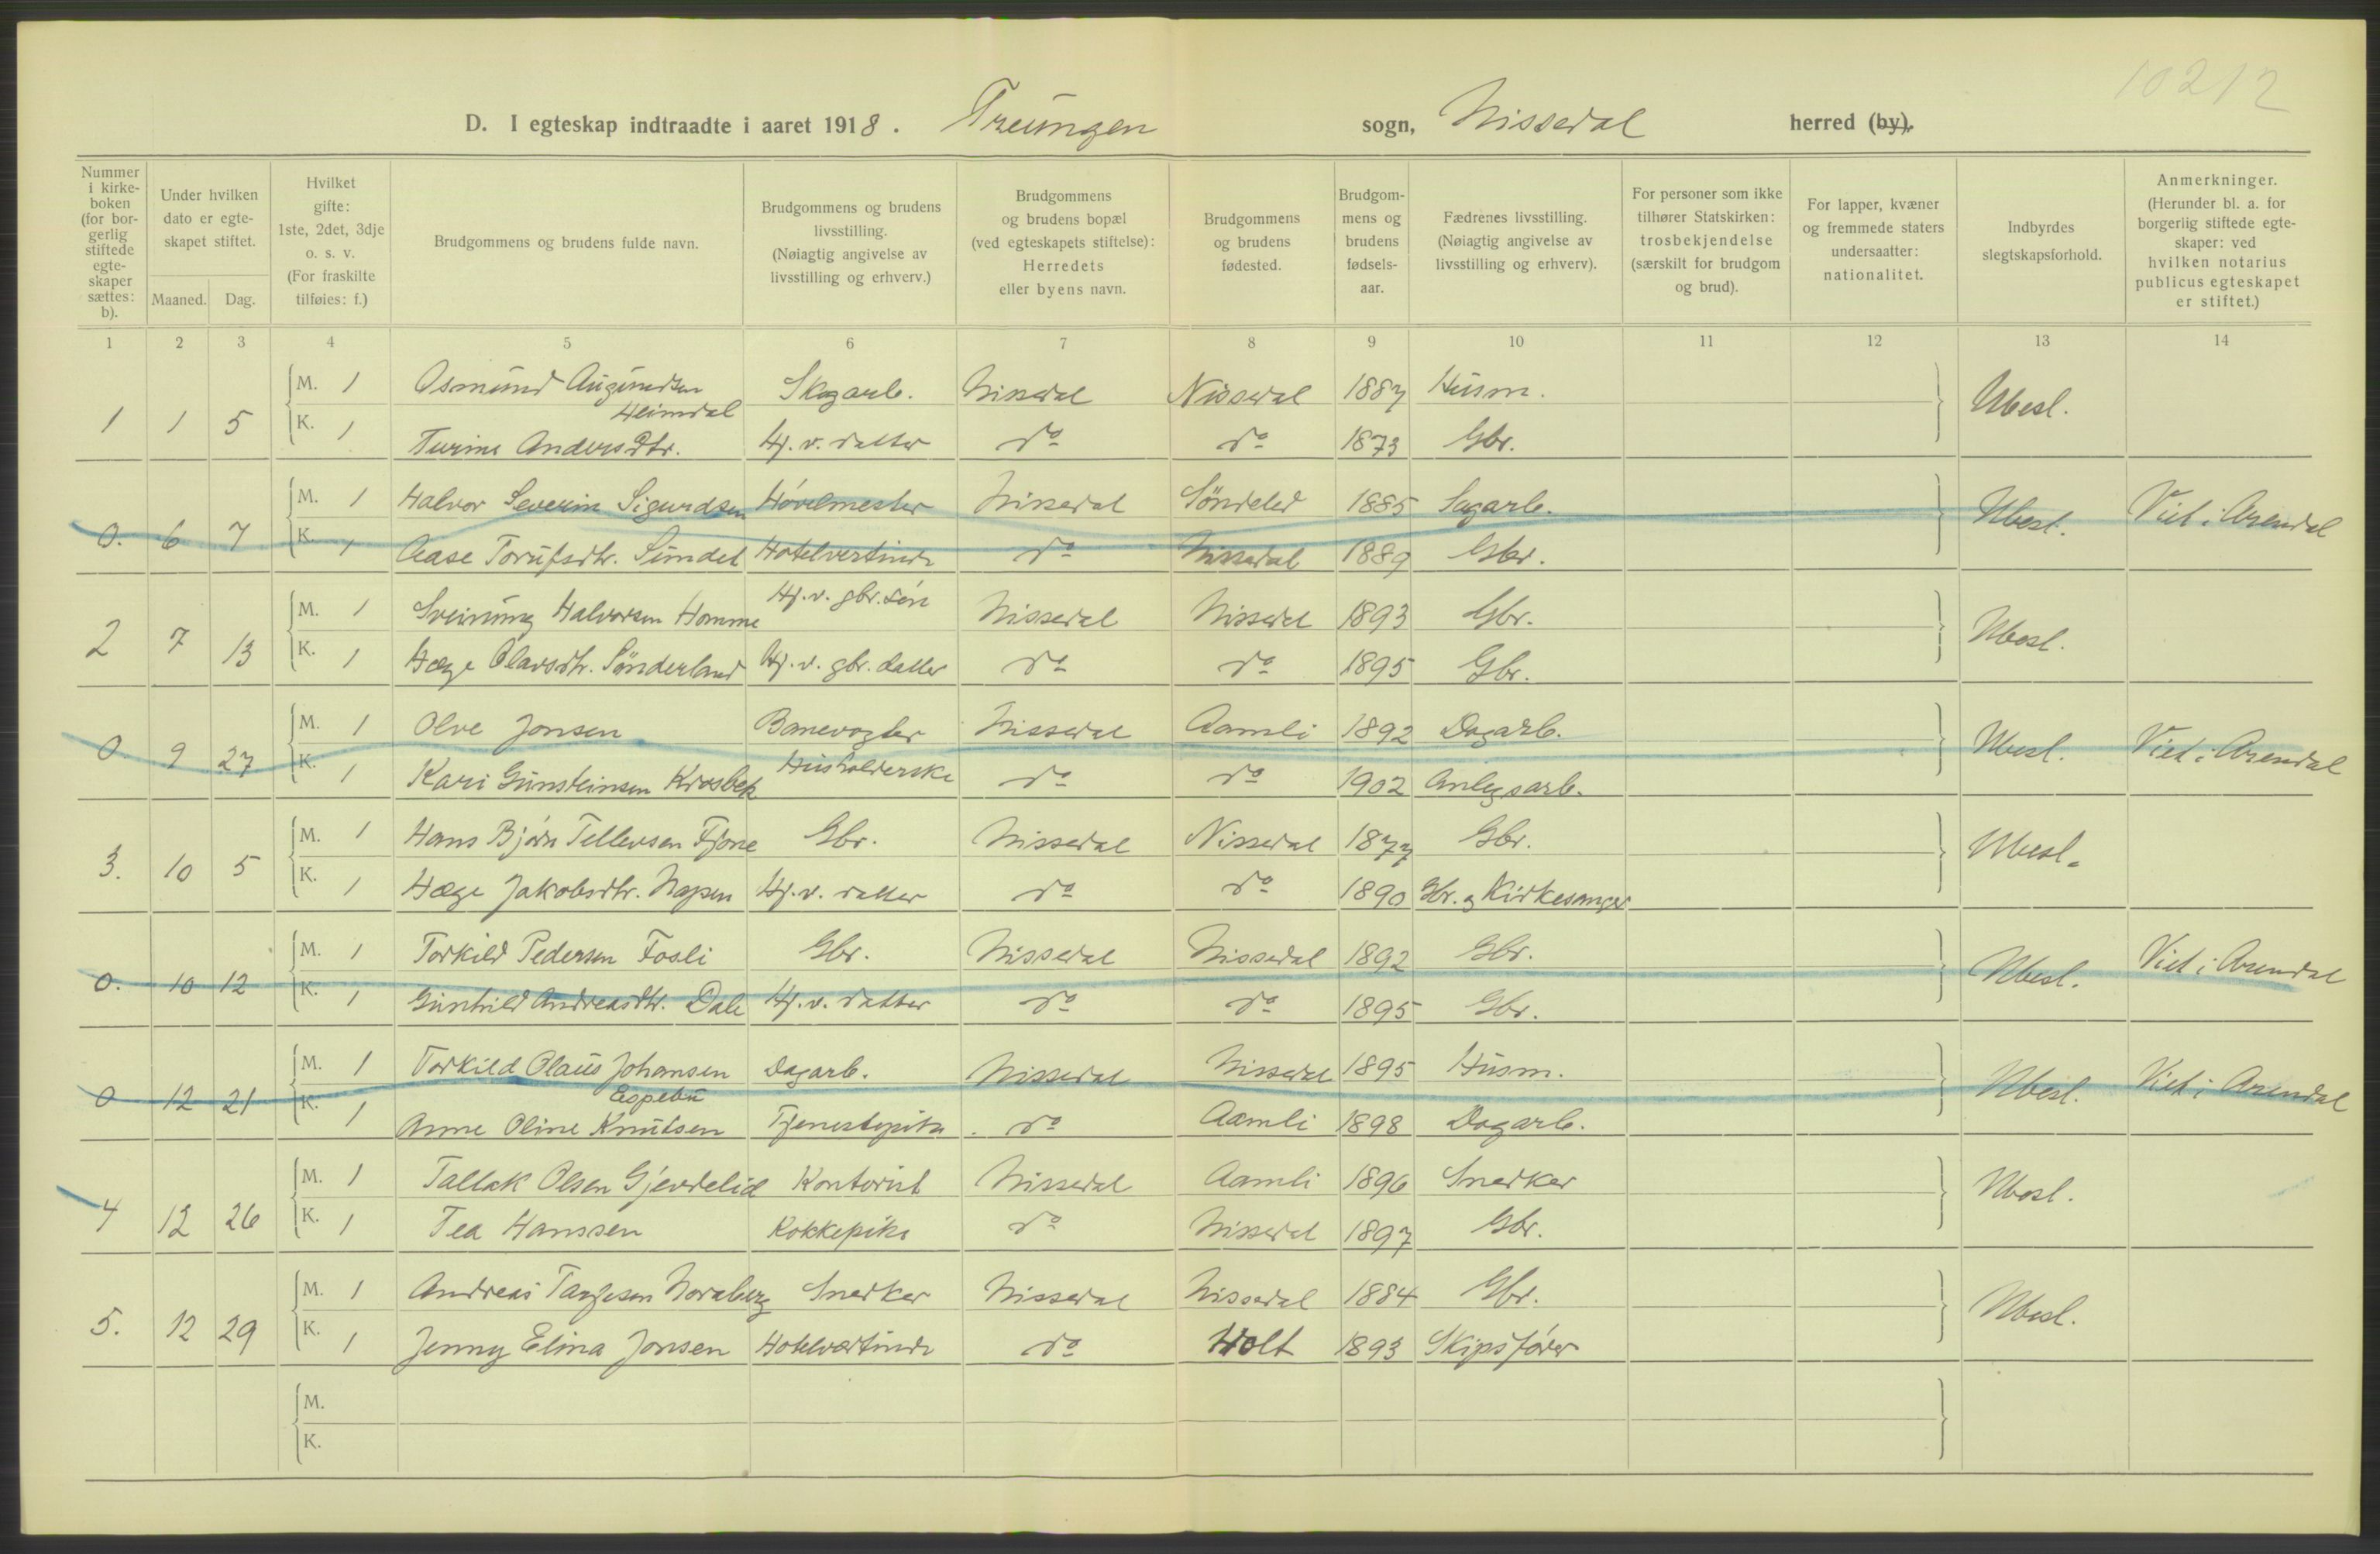 10212
D. I egteskap indtraadte i aaret 1918. Treungen sogn, Nissedal herred (by).
Nummer i kirkeboken (for borgerlig stiftede egteskaper sættes: b).
Under hvilken dato er egteskapet stiftet.
Maaned. Dag.
Hvilket gifte: 1ste, 2det, 3dje o. s. v. (For fraskilte tilføies: f.)
Brudgommens og brudens fulde navn.
Brudgommens og brudens livsstilling. (Nøiagtig angivelse av livsstilling og erhverv.)
Brudgommens og brudens bopæl (ved egteskapets stiftelse): Herredets eller byens navn.
Brudgommens og brudens fødested.
Brudgommens og brudens fødselsaar.
Fædrenes livsstilling. (Nøiagtig angivelse av livsstilling og erhverv).
For personer som ikke tilhører Statskirken: trosbekjendelse (særskilt for brudgom og brud).
For lapper, kvæner og fremmede staters undersaatter: nationalitet.
Indbyrdes slegtskapsforhold.
Anmerkninger. (Herunder bl. a. for borgerlig stiftede egteskaper: ved hvilken notarius publicus egteskapet er stiftet.)
1 2 3 4 5 6 7 8 9 10 11 12 13 14
M. 1 Osmund Augundsen Heimdal Skogarb. Nissedal Nissedal 1887 Husm.
1 1 5 Ubesl.
K. 1 Turine Andersdtr. Hj. v. datter do do 1873 Gbr.
M. 1 Halvor Severin Sigurdsen Høvelmester Nissedal Søndeled 1885 Sagarb.
0. 6 7 Ubesl. Viet i Arendal
K. 1 Aase Torufsdtr. Sundet Hotelvertinde do Nissedal 1889 Gbr.
M. 1 Sveinung Halvorsen Homme Hj. v. gbr. søn Nissedal Nissedal 1893 Gbr.
2 7 13 Ubesl.
K. 1 Hæge Olavsdtr. Sønderland Hj. v. gbr. datter do do 1895 Gbr.
M. 1 Olve Jonsen Banevogter Nissedal Aamli 1892 Dagarb.
0 9 27 Ubesl. Viet i Arendal
K. 1 Kari Gunsteinsen Krosbek Husholderske do do 1902 Anlegsarb.
M. 1 Hans Bjørn Tellevsen Fjone Gbr. Nissedal Nissedal 1877 Gbr.
3. 10 5 Ubesl.
K. 1 Hæge Jakobsdtr. Napen Hj. v. datter do do 1890 Gbr. og Kirkesanger
M. 1 Torkild Pedersen Fosli Gbr. Nissedal Nissedal 1892 Gbr.
0. 10 12 Ubesl. Viet i Arendal
K. 1 Gunhild Andreasdtr. Dale Hj. v. datter do do 1895 Gbr.
M. 1 Torkild Olaus Johansen Espebu Dagarb. Nissedal Nissedal 1895 Husm.
0 12 21 Ubesl. Viet i Arendal
K. 1 Anne Oline Knutsen Tjenestepike do Aamli 1898 Dagarb.
M. 1 Tallak Olsen Gjevdelid Kontorist Nissedal Aamli 1896 Snedker
4 12 26 Ubesl.
K. 1 Tea Hanssen Kokkepike do Nissedal 1897 Gbr.
M. 1 Andreas Targesen Nordberg Snedker Nissedal Nissedal 1884 Gbr.
5. 12 29 Ubesl.
K. 1 Jenny Elina Jonsen Hotelvertinde do Holt 1893 Skipsfører
M.
K.